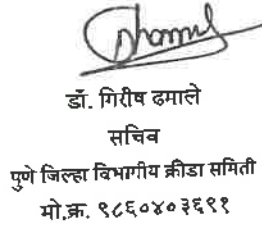 डॉ. गिरीष ढमाले
सचिव
पुणे जिल्हा विभागीय क्रीडा समिती
मो.क्र. ९८६०४०३६९१